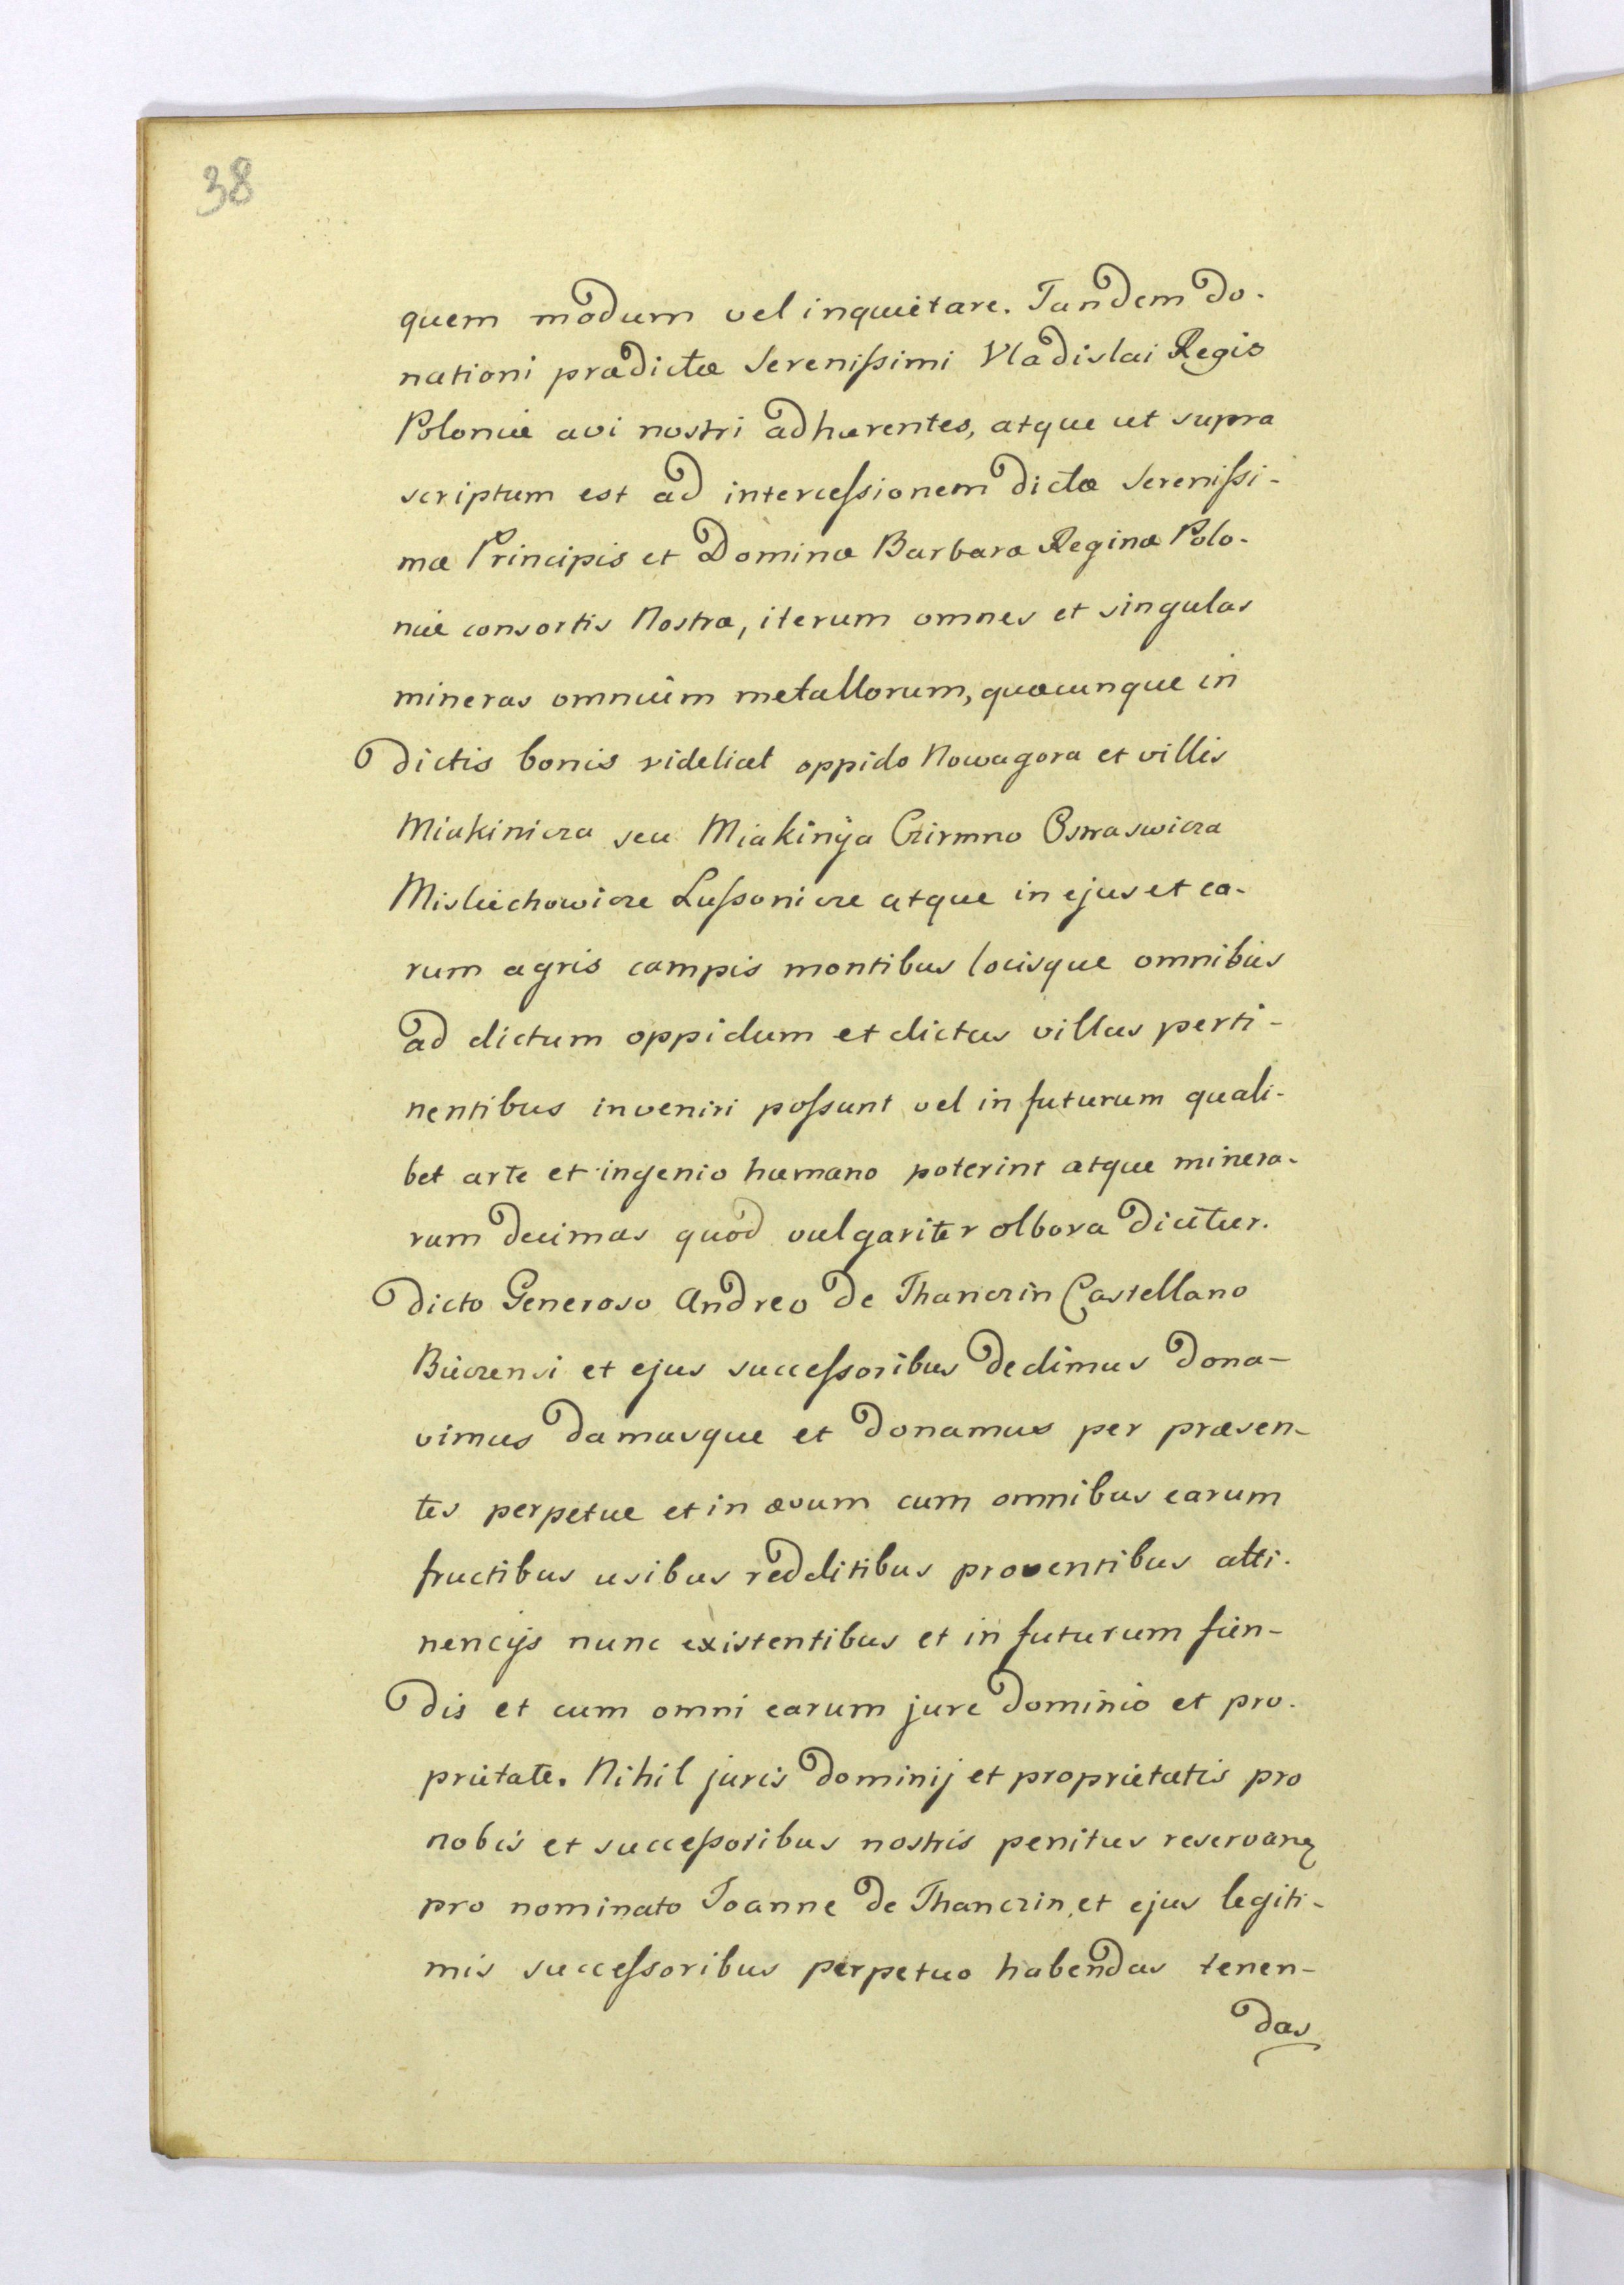 38
quem modum vel inquietare. Tandem do-
nationi prædictæ Serenissimi Vladislai Regis
Poloniæ avi nostri adhærentes, atque ut supra
scriptum est ad intercessionem dictæ Serenissi-
mæ Principis et Dominæ Barbaræ Reginæ Polo-
niæ consortis Nostræ, iterum omnes et singulas
mineras omnium metallorum, quæcunque in
dictis bonis videlicet oppido Nowagora et villis
Miakinicza seu Miakinÿa Czirmno Ostraswicza
Misliechowicze Lussonicze atque in ejus et ea-
rum agris campis montibus locisque omnibus
ad dictum oppidum et dictas villas perti-
nentibus inveniri possunt vel in futurum quali-
bet arte et ingenio humano poterint atque minera-
rum decimas quod vulgariter olbora dicitur.
Dicto Generoso Andreo de Thanczin Castellano
Biiczensi et ejus successoribus dedimus dona-
vimus damusque et donamus per præsen-
tes perpetue et in ævum cum omnibus earum
fructibus usibus redditibus proventibus atti-
nencijs nunc existentibus et in futurum fien-
dis et cum omni earum jure dominio et pro-
prietate. Nihil juris dominij et proprietatis pro
nobis et successoribus nostris penitus reservanꝫ
pro nominato Joanne de Thanczin et ejus legiti-
mis successoribus perpetuo habendas tenen-
das